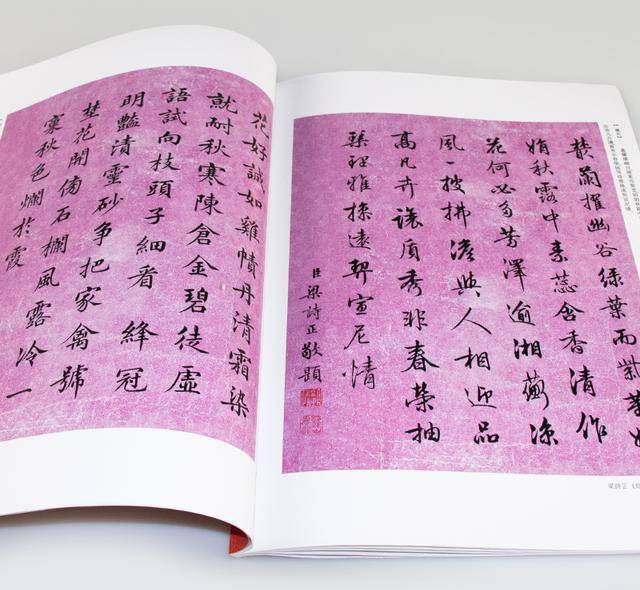 花好誠如雞幘丹清霜染
就耐秋寒陳倉金碧徒虛
語試向枝頭子細看 絳冠
明豔清靈砂爭把家禽號
埜花開傍石欄風露冷一
窠秋色爛於霞
爾擢幽谷綠葉而紫莖娟
娟秋露中素蕊含香清作
花何必多芳澤逾湘蘅涼
風一披拂澹與人相迎品
高凡卉讓質秀非春榮抽
琹理雅操遠契宣尼情
臣梁詩正敬題
梁詩正《